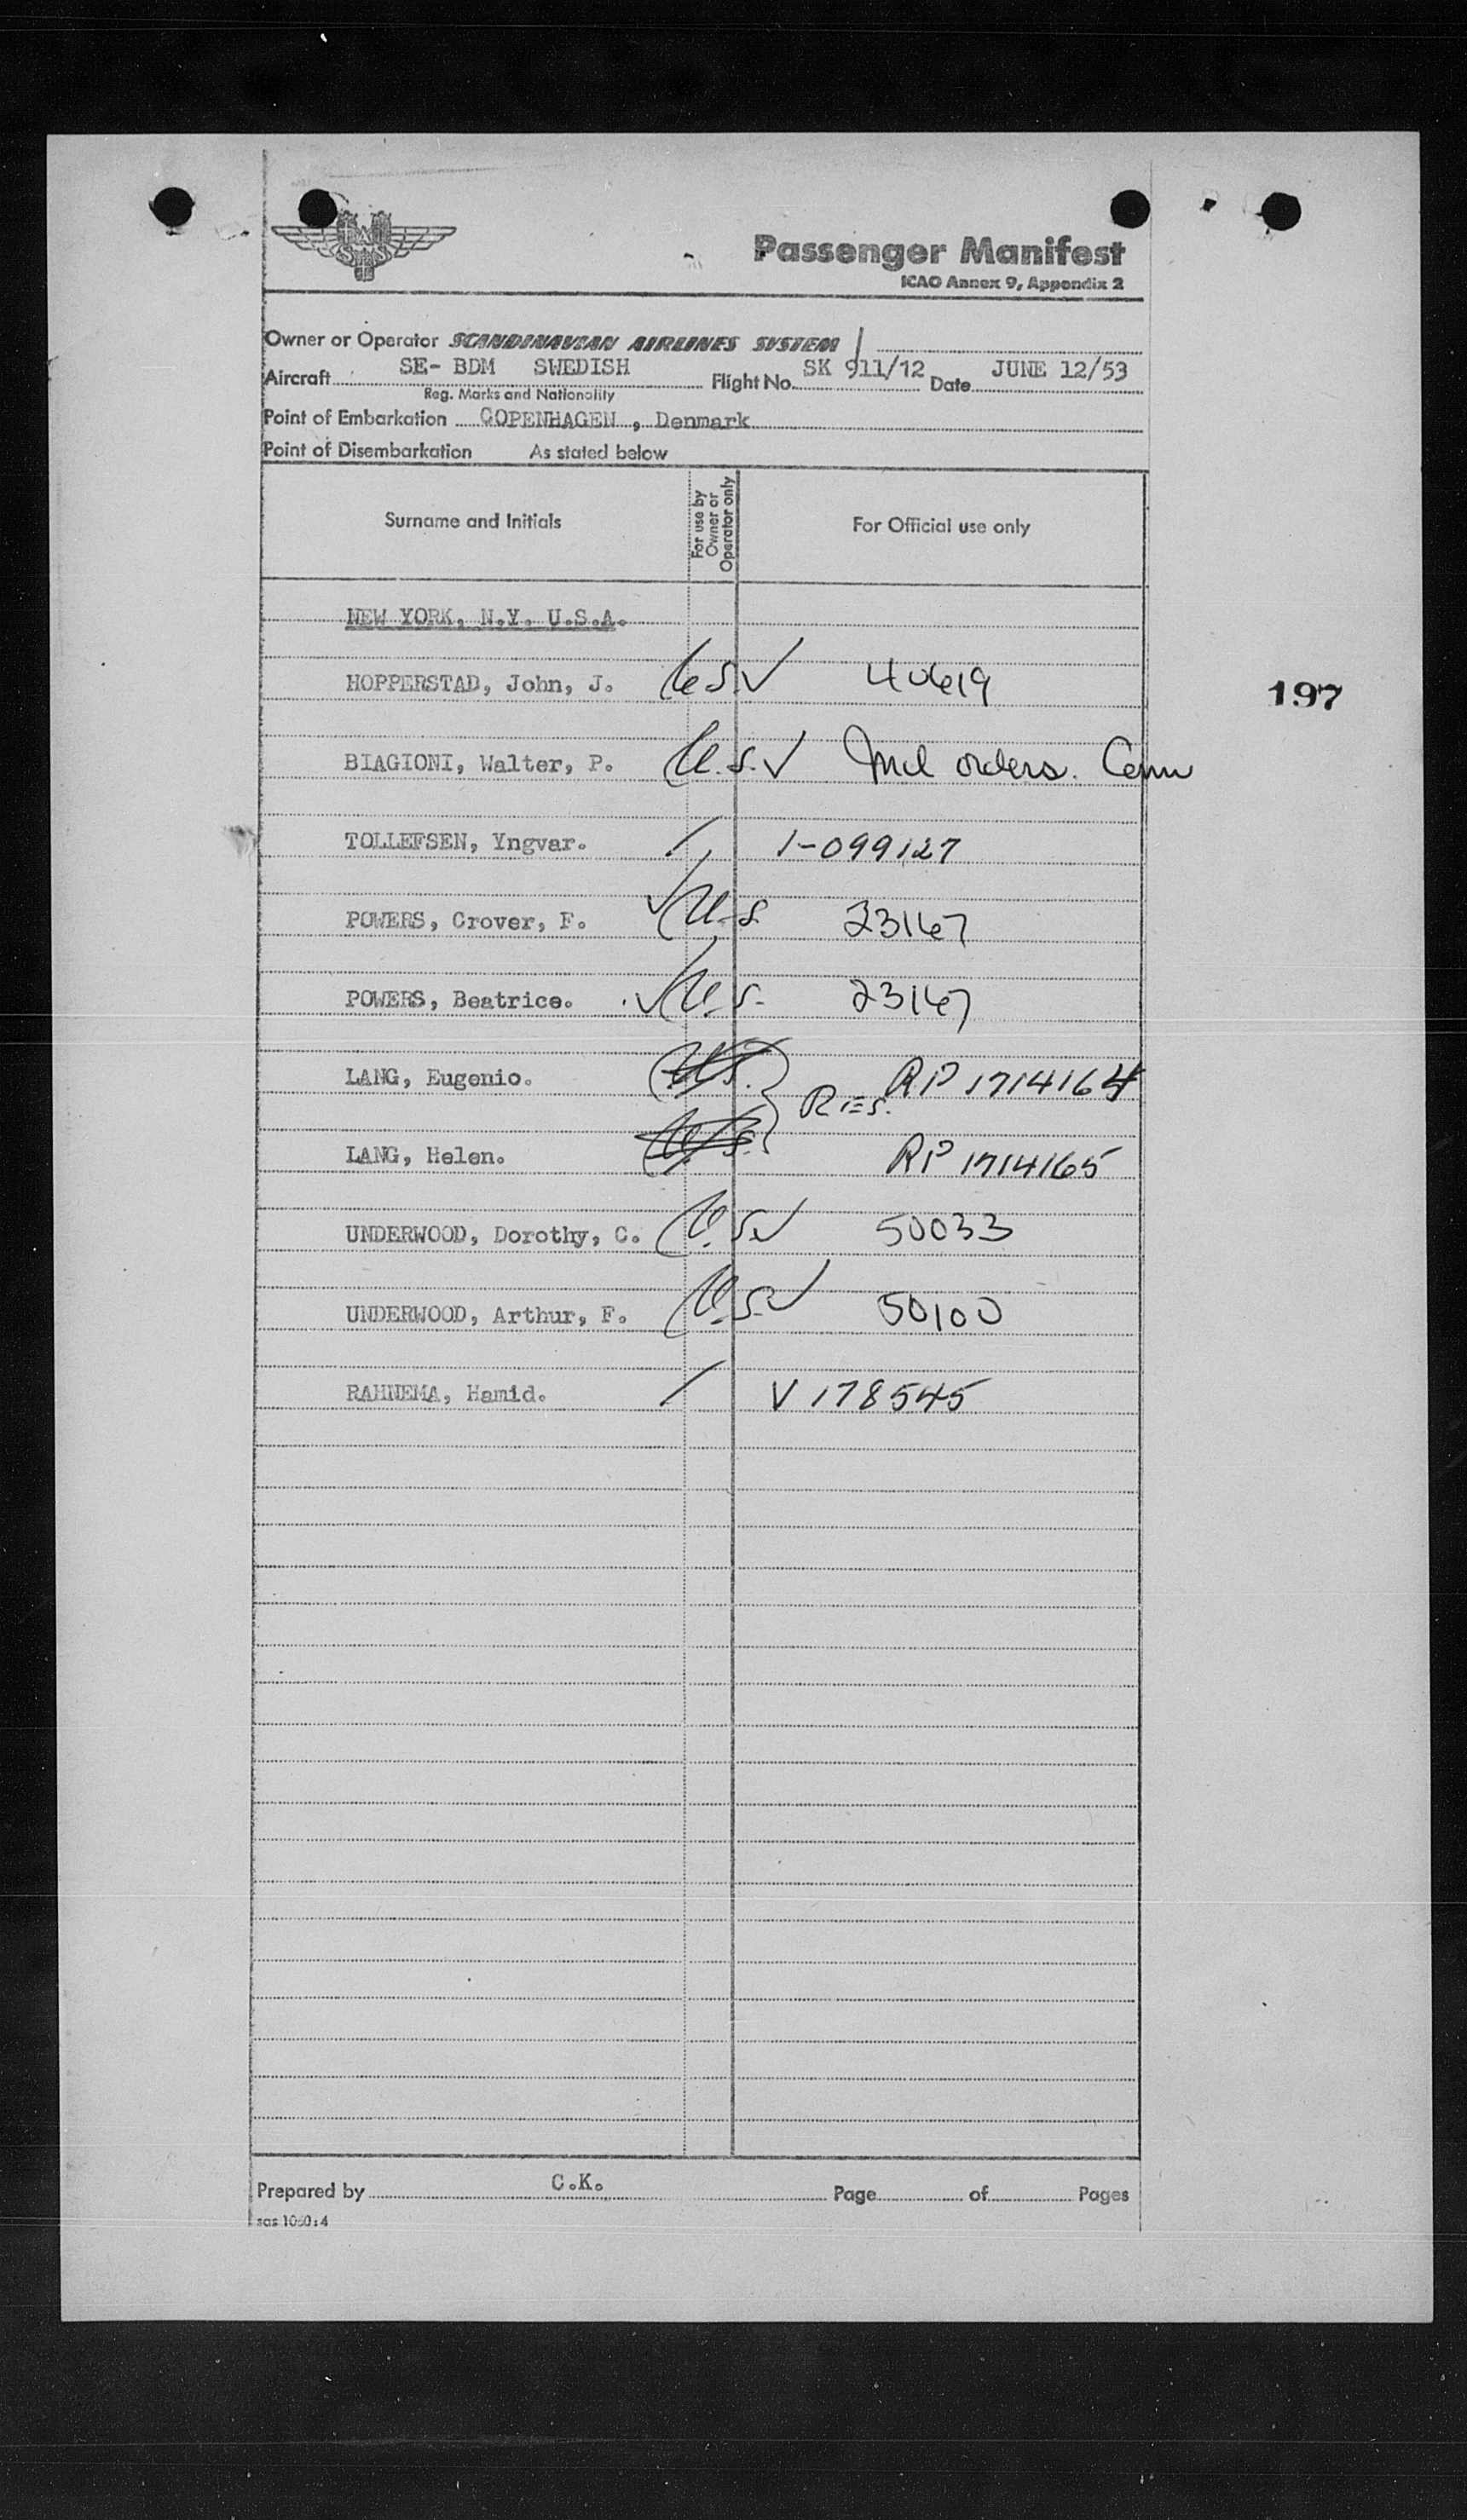 SAS
Passenger Manifest
ICAO Annex 9, Appendix 2
Owner or Operator SCANDINAVIAN AIRLINES SYSTEM
Aircraft SE- BDM SWEDISH Flight No. SK 911/12 Date JUNE 12/53
Reg. Marks and Nationality
Point of Embarkation COPENHAGEN , Denmark
Point of Disembarkation As stated below
Surname and Initials For use by Owner or Operator only For Official use only
NEW YORK, N.Y. U.S.A.
HOPPERSTAD, John, J. U.S. ✓ 40619
197
BIAGIONI, Walter, P. U.S. ✓ Mil orders.
TOLLEFSEN, Yngvar. / 1-099127
POWERS, Crover, F. ✓ U.S. 23167
POWERS, Beatrice. ✓ U.S. 23167
LANG, Eugenio. U.S. RP 1714164
RES.
LANG, Helen. U.S. RP 1714165
UNDERWOOD, Dorothy, C. U.S. ✓ 50033
UNDERWOOD, Arthur, F. U.S. ✓ 50100
RAHNEMA, Hamid. / V 178545
Prepared by C.K. Page of Pages
sas 1060:4